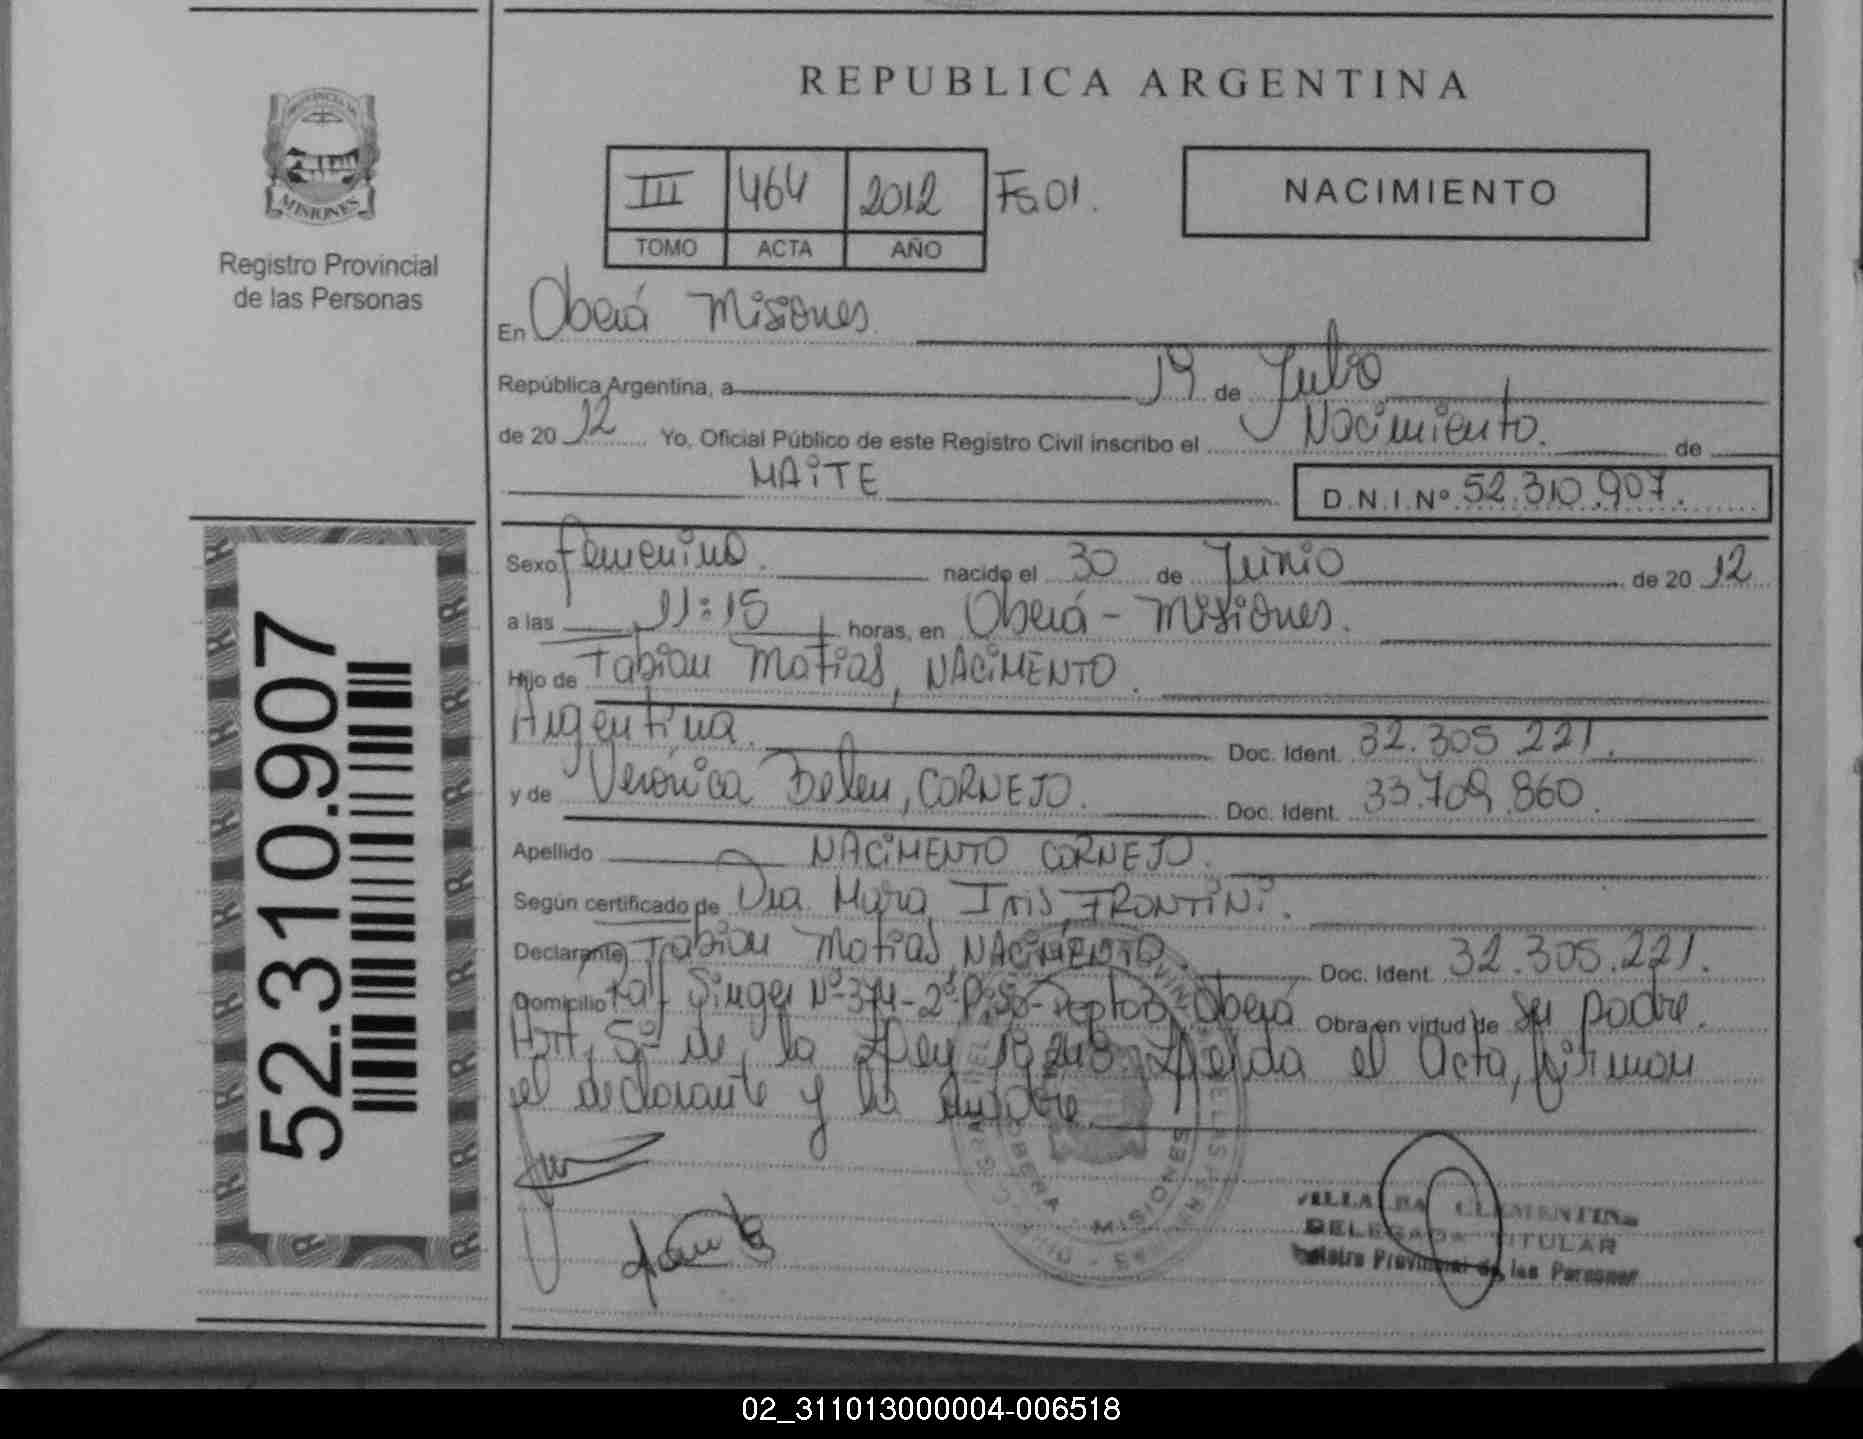 REPUBLICA ARGENTINA
PROVINCIA DE
MISIONES
Registro Provincial
de las Personas
III 464 2012 Fo.01.
TOMO ACTA AÑO
NACIMIENTO
En Oberá Misiones
República Argentina, a 19 de Julio
de 2012 Yo, Oficial Público de este Registro Civil inscribo el Nacimiento. de
MAiTE D.N.I.Nº 52.310.907.
Sexo femenino. nacido el 30 de Junio de 2012
a las 11:15 horas, en Oberá - Misiones.
Hijo de Fabian Matias, NACiMENTO.
Argentina. Doc. Ident. 32.305.221.
y de Verónica Belen, CORNEJO. Doc. Ident. 33.709.860.
Apellido NACiMENTO CORNEJO.
Según certificado de Dra. Mara Iris, FRONTiNi.
Declarante Fabian Matias NACiMENTO. Doc. Ident. 32.305.221.
Domicilio Singer Nº 374-2º Piso- Oberá Obra en virtud de su padre.
Art. 5º de la Ley 18.248. Leida el Acta, firman
el declarante y la madre.
52.310.907
OBERA - MISIONES
VILLALBA CLEMENTINA
DELEGADA TITULAR
Registro Provincial de las Personas
02_311013000004-006518